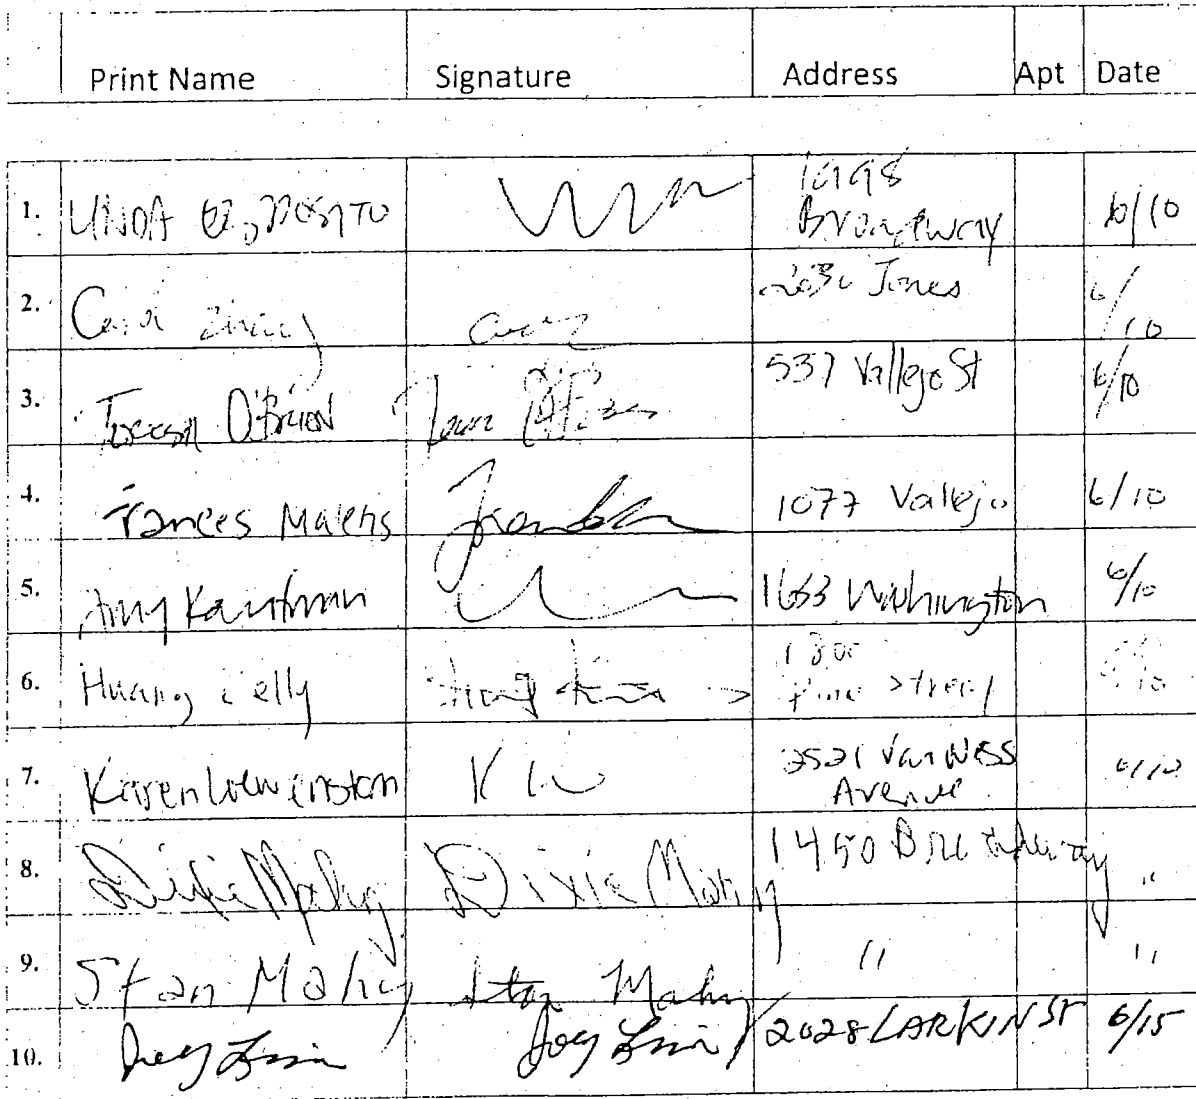 Print Name Signature Address Apt Date
1. LINDA ESPOSITO 1998 Broadway 6/10
2. Carol 2030 Jones 6/10
3. Teresa O'Brien 537 Vallejo St 6/10
4. Frances Malens 1077 Vallejo 6/10
5. Amy Kaufman 1653 Washington 6/10
6. Huang 1800 Pine Street 10
7. Karen Lowenstein K 2521 Van Ness Avenue 6/10
8. Dixie Mahy Dixie Mahy 1450 Broadway "
9. Stan Mahy Stan Mahy " "
10. Joey 2028 LARKIN ST 6/15